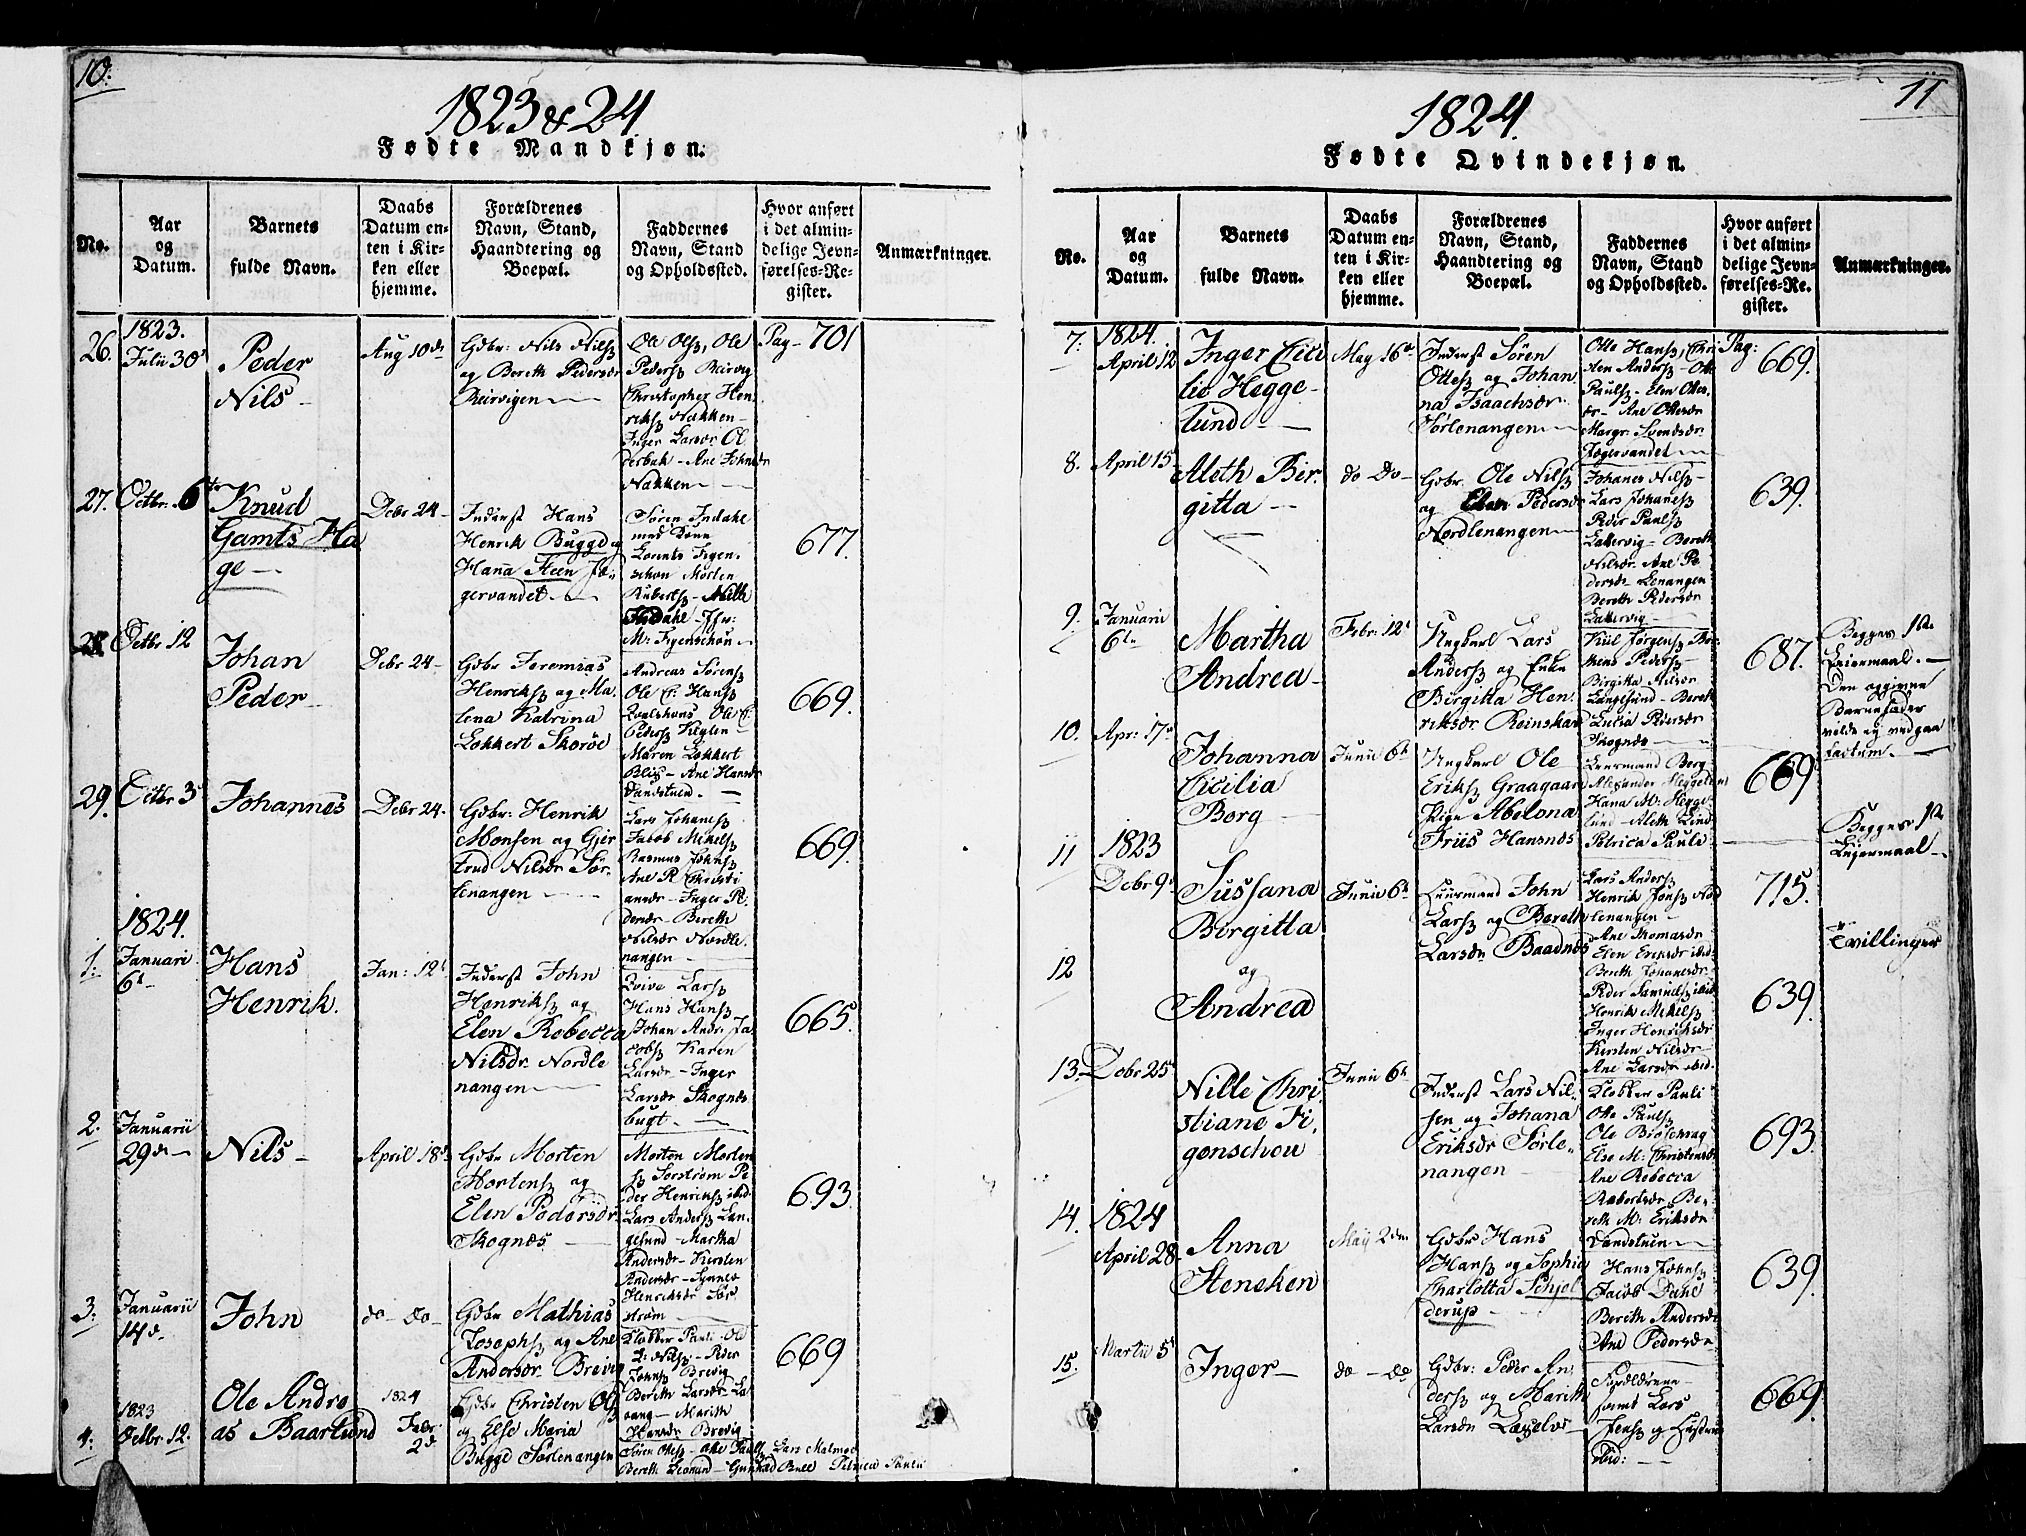 10.
1823 & 24
Fødte Mandkjøn.
No.
Aar
og
Datum.
Barnets
fulde Navn.
Daabs
Datum en-
ten i Kir-
ken eller
hjemme.
Forældrenes
Navn, Stand,
Haandtering og
Boepæl.
Faddernes
Navn, Stand
og Opholdssted.
Hvor anført
i det almin-
delige Jevn-
førelses-Re-
gister.
Anmærkninger.
26.
1823.
Julii 30
Peder
Nils
Aug 10de
Gdbr: Nils Nils
og Bereth Pedersdr
Reirvigen
Ole Ols, Ole
Peders Reirvig
Christopher Hen
riks Nakken
Inger Larsdr Ol
derbak - Ane Johnsdr
Nakken
Pag - 701
27.
Octbr. 6te
Knud
Gamts Ha
ge
Debr 24
Inderst Hans
Henrik Bugge og
Hana Steen Jæ
gervandet
Søren Indahl
med Kone
Lorents Figen
schou Morten
Ruberts - Nille
Indahl - Jfr:
M: Figenschou
677.
28
Octbr 12
Johan
Peder
Debr 24
Gdbr Jeremias
Henriks og Ma
lena Katrina
Lokkert Skorøe
Andreas Sørens
Ole C: Hans
Ole C
Peders
Maren Lokkert
Blix - Ane Hansdr
Vandstuen
669.
29.
Octbr 3
Johannes
Debr 24
Gdbr: Henrik
Monsen og Gjer
trud Nilsdr Sør
lenangen
Lars Johanes
Jacob Mikels
Rasmus Johns
Ane P. Christi
ansdr - Inger Pe
dersdr - Bereth
Nilsdr Nordle
nangen
669.
1824.
1.
Januari
6t
Hans
Henrik.
Jan: 12t
Inderst John
Henriks og
Elen Rebecca
Nilsdr Nordle
nangen
Lars
Hans Hans
Johan Andr. Ja
cobs Karen
Larsdr - Inger
Larsdr Skognæs
bugt
665.
2.
Januarii
29de
Nils
April 18d
Gdbr Morten
Mortens og
Elen Pedersdr
Skognæs
Morten Morten
s Sørstrøm Pe
der Henriks ibid
Lars Anders Lan
gesund - Martha
Andersdr - Kirsten
Andersdr - Synneve
Henriksdr Sør
strøm
693.
3.
Januarii
14de
John
do - do
Gdbr Mathias
Josephs og Ane
Andersdr Brevig
Klokker Pauli - Ole
L: Nils - Peder
Johns Brevig
Bereth Larsdr La
vang - Marith
Hansdr Brevig
669
4.
1823
Octbr. 12.
Ole Andre
as Baarlund
1824
Febr
2d
Gdbr Christen Ols
og Else Maria
Bugge Sørlenangen
Søren Ottes - Ane Pauls Lars Malmoe
Bereth - Gunhild Petrica Pauli
11
1824.
Fødte Qvindekjøn.
No.
Aar
og
Datum.
Barnets
fulde Navn.
Daabs
Datum en-
ten i Kir-
ken eller
hjemme.
Forældrenes
Navn, Stand,
Haandtering og
Boepæl.
Faddernes
Navn, Stand
og Opholdssted.
Hvor anført
i det almin-
delige Jevn-
førelses-Re-
gister.
Anmærkninger.
7.
1824.
April 12
Inger Cici
lie Hegge
lund
May 16de
Inderst Søren
Ottes og Johan
na Isaachsdr
Sørlenangen
Otte Hans, Chri
sten Anders - Ott
Pauls - Elen Otte
dr - Ane Ottesdr
Margr: Svendsdr
Jægervandet
Pag: 669.
8.
April 15
Aleth Bir
gitta
do Do
Gdbr. Ole Nils
og Elen Pedersdr
Nordlenangen
Johanes Nils
Lars Johanes
Peder Pauls
Lattervig - Bereth
Nilsdr. Ane Pe
dersdr Lenangen
Bereth Pedersdr
Lattervig
639.
9.
Januarii
6te
Martha
Andrea
Febr: 12t
Ungkarl Lars
Anders og Enke
Birgitta Hen
riksdr Reinskar
Kiil Jørgens
Peders
Birgitta Nilsdr
Langesund - Bereth
Lucia Pedersdr
Skognæs
687.
Begges 1ste
Leiermaal.
Den opgivne
Barnefader
vilde ej vedgaa
factum.
10.
Apr: 17de
Johanna
Cicilia
Borg
Junii 6te
Ungkarl Ole
Eriks Graagaard
Pige Abelona
Friis Hansnæs
Leermand Borg
Alexander Heggelund
Hana M: Hegge
lund - Aleth Lind
Petrica Pauli
669
Begges 1ste
Lejermaal
11
1823
Debr 9
Sussana
Birgitta
Junii 6te
Leiermand John
Lars og Bereth
Larsdr Baadnæs
Lars Anders
Henrik Jons Nord
lenangen
Ane Thomasdr
Elen Eriksdr ibid
Bereth Johanesdr
715.
Tvillinger
12
og
Andrea
Peder Samuels ibid
Henrik Mikels
Inger Henriksdr
Kirsten Nilsdr
Ane Larsdr ibid
639.
13.
Debr 25
Nille Chri
stiane Fi
genschou
Junii 6te
Inderst Lars Nil
sen og Johana
Eriksdr Sørle
nangen
Klokker Pauli
Otte Pauls
Ole
Else M: Christensdr
Ane Rebecca
Robertsdr, Be
reth M: Eriksdr
Vandstuen
693.
14.
1824
April 28
Anna
Steneken
May 2den
Gdbr Hans
Hans og Sophia
Charlotta Schjel
derup
Hans Johns
Jacob Dahl
Bereth Andersdr
Ane Pedersdr
639.
15.
Martii 5
Inger
do - do
Gdbr: Peder An
ders og Marith
Larsdr
Forældrene
samt Lars
Jens og Hustrue
ibid:
669.